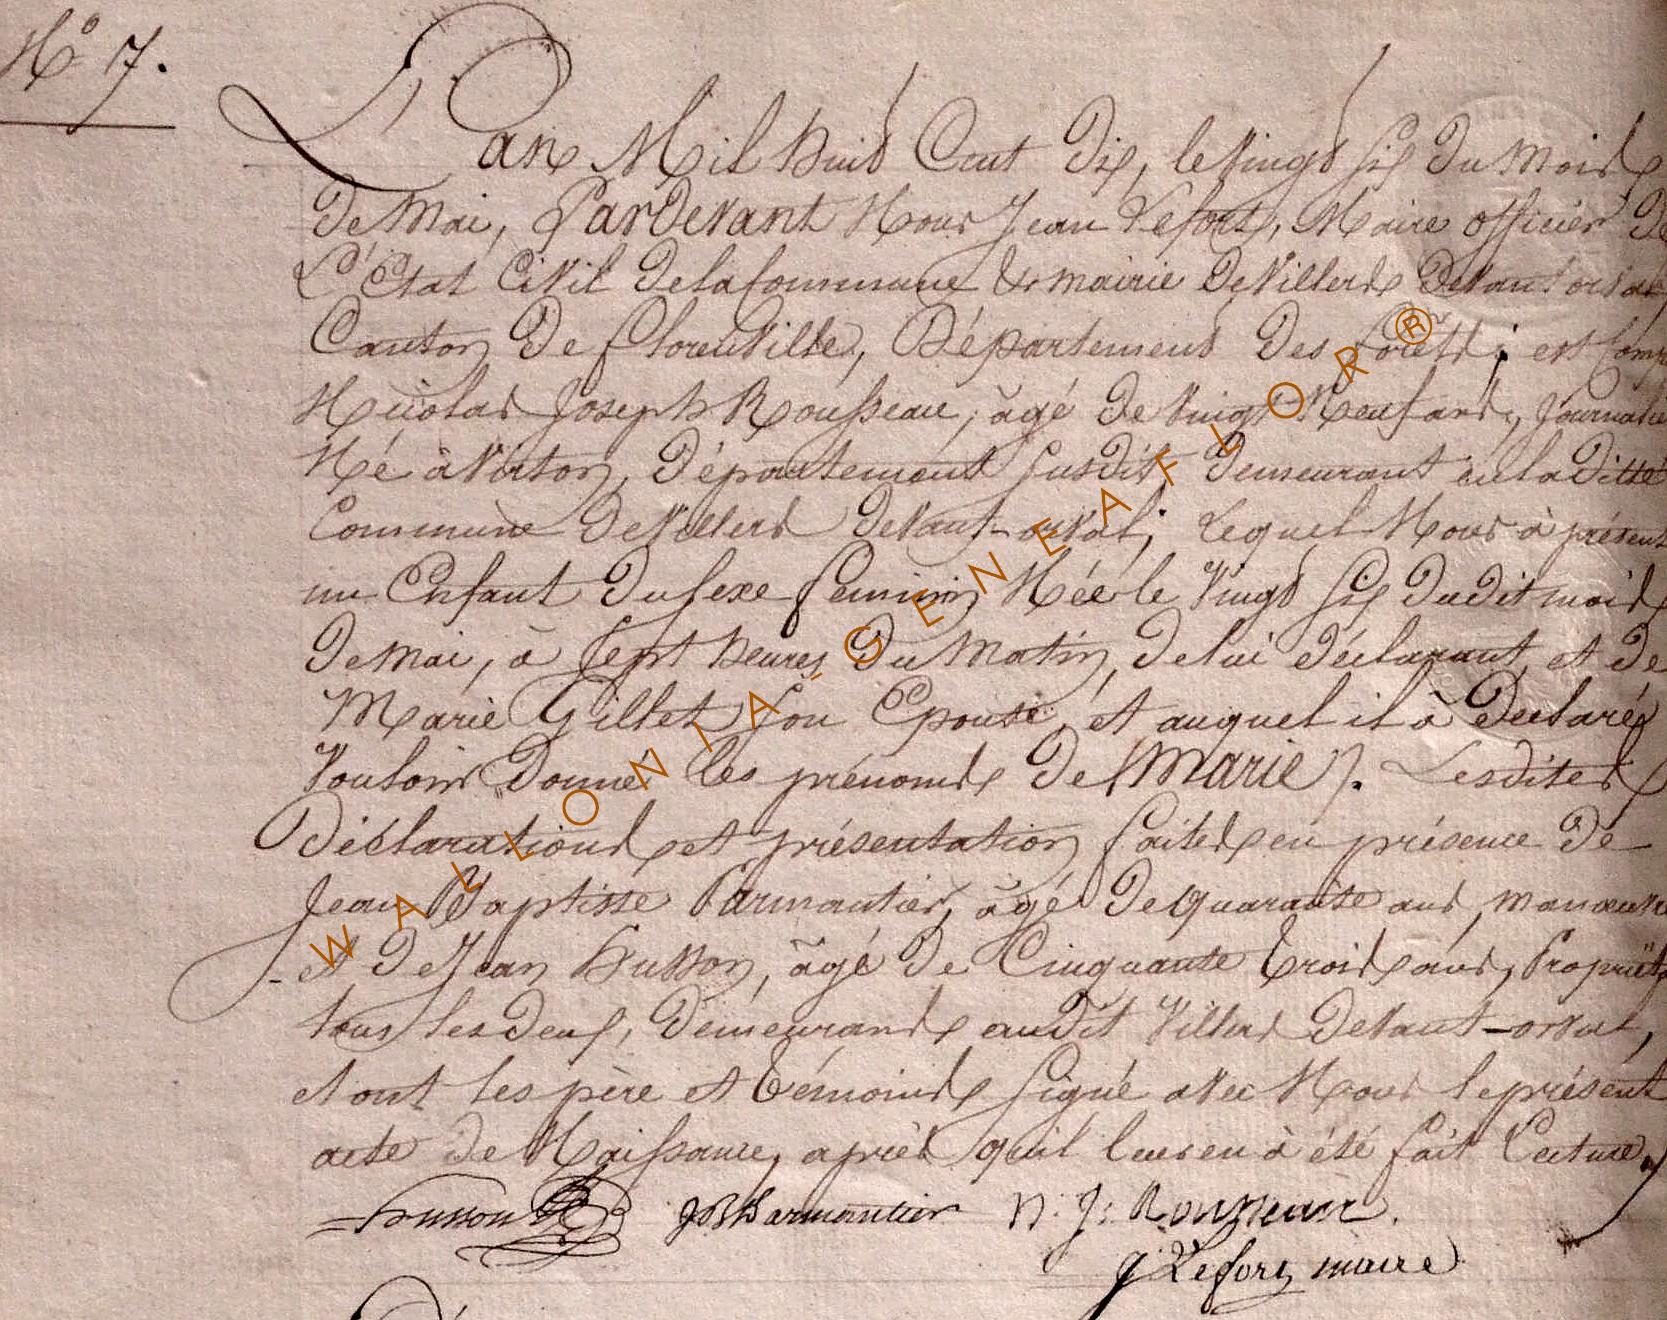 N° 7.
L'an Mil huit Cent dix, le Vingt six du Mois
De Mai, Pardevant Nous Jean Lefort, Maire officier de
L'Etat Civil De la Commune & mairie De Villers Devant orval
Canton De florenville, Département Des Forêts; est Comp
Nicolas Joseph Rousseau, âgé De Vingt-Neuf ans, Journalie
Né à Virton, Département susdit, Demeurant en la Ditte
Commune De Villers Devant-orval; Lequel Nous à présent
un Enfant Du sexe feminin Née le Vingt six Dudit mois
De Mai, à sept heures Du Matin, De lui déclarant, et De
Marie Gillet son Epouse, et auquel il à Déclaré
Vouloir Donner les prénoms De Marie. Lesdites
Déclarations et présentation faites en présence De
Jean Baptiste Parmantier, âgé De quarante ans, manœuvre
et De Jean Husson, âgé De Cinquante trois ans, Propriét
tous les deux, Demeurants audit Villers Devant-orval,
et ont les père et témoins signé avec Nous le présent
acte De Naissance, après qu'il leur en à été fait Lecture,
Husson JB Parmantier N: J: Rousseau.
J Lefort maire
WALLONIA-GENEAFLOR®